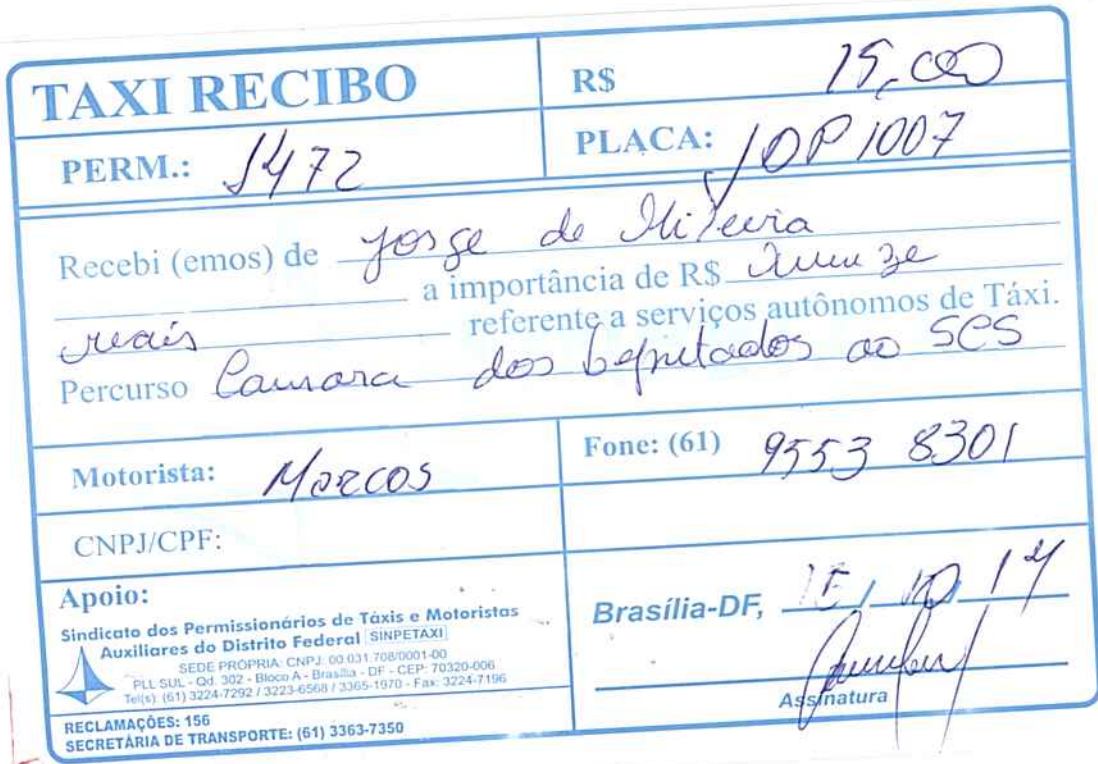 TAXI RECIBO
R$ 15,00
PERM.: 1472
PLACA: JOP 1007
Recebi (emos) de Jorge de
a importância de R$ quinze
reais referente a serviços autônomos de Táxi.
Percurso Camara dos Deputados ao SCS
Motorista: Marcos
Fone: (61) 9553 8301
CNPJ/CPF:
Apoio:
Sindicato dos Permissionários de Táxis e Motoristas
Auxiliares do Distrito Federal SINPETAXI
SEDE PRÓPRIA: CNPJ: 00.031.708/0001-00
PLL SUL - Qd. 302 - Bloco A - Brasília - DF - CEP: 70320-006
Tel(s): (61) 3224-7292 / 3223-6568 / 3365-1970 - Fax: 3224-7196
RECLAMAÇÕES: 156
SECRETÁRIA DE TRANSPORTE: (61) 3363-7350
Brasília-DF, 15 / 10 / 14
Assinatura